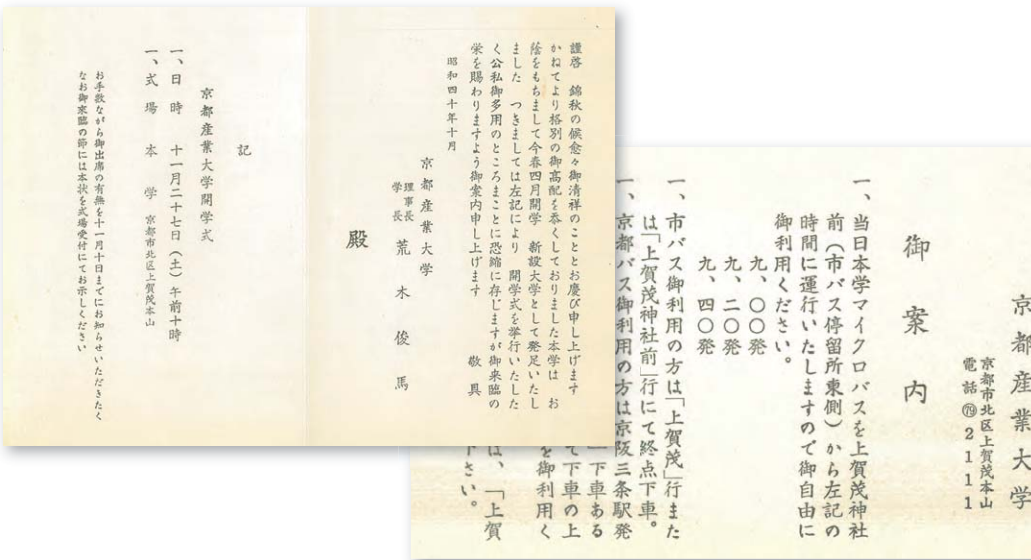 謹啓　錦秋の候愈々御清祥のこととお慶び申し上げます
かねてより格別の御高配を忝くしておりました本学は　お
蔭をもちまして今春四月開学　新設大学として発足いたし
ました　つきましては左記により　開学式を挙行いたした
く公私御多用のところまことに恐縮に存じますが御来臨の
栄を賜わりますよう御案内申し上げます　敬具
昭和四十年十月
京都産業大学
理事長
学長
荒木俊馬
殿
記
京都産業大学開学式
一、日時　十一月二十七日（土）午前十時
一、式場　本学　京都市北区上賀茂本山
お手数ながら御出席の有無を十一月十日までにお知らせいただきたく
なお御来臨の節には本状を式場受付にてお示しください
京都産業大学
京都市北区上賀茂本山
電話㊆2111
御案内
一、当日本学マイクロバスを上賀茂神社
前（市バス停留所東側）から左記の
時間に運行いたしますので御自由に
御利用ください。
九、〇〇発
九、二〇発
九、四〇発
一、市バス御利用の方は「上賀茂」行また
は「上賀茂神社前」行にて終点下車。
一、京都バス御利用の方は京阪三条駅発
下車ある
て下車の上
を御利用く
は、「上賀
下さい。